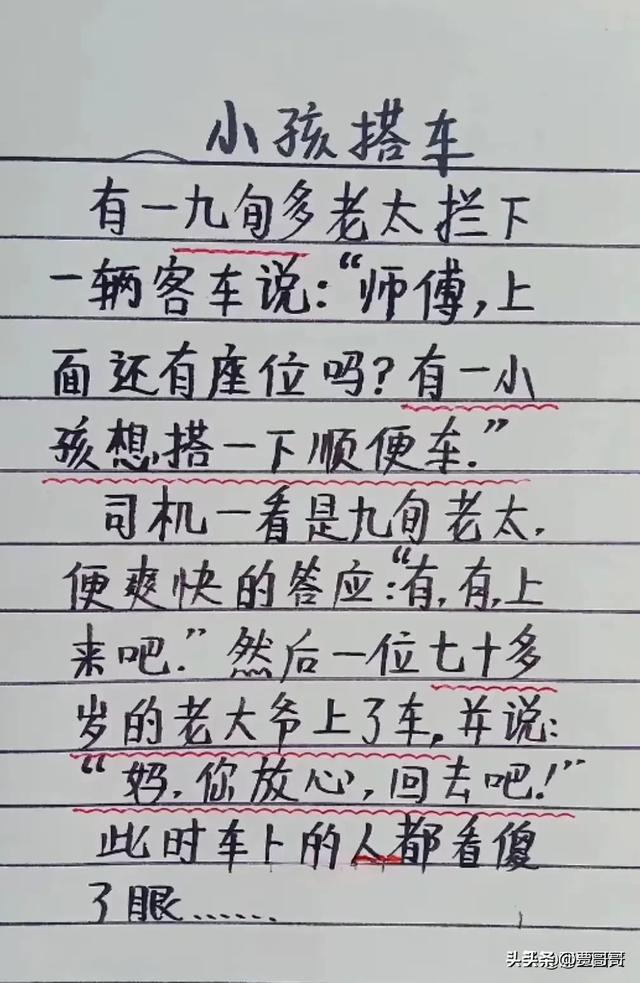 小孩搭车
有一九旬多老太拦下
一辆客车说:“师傅,上
面还有座位吗?有一小
孩想搭一下顺便车.”
司机一看是九旬老太,
便爽快的答应:“有,有,上
来吧.”然后一位七十多
岁的老大爷上了车,并说:
“妈,你放心,回去吧!”
此时车上的人都看傻
了眼......
头条@贾哥哥